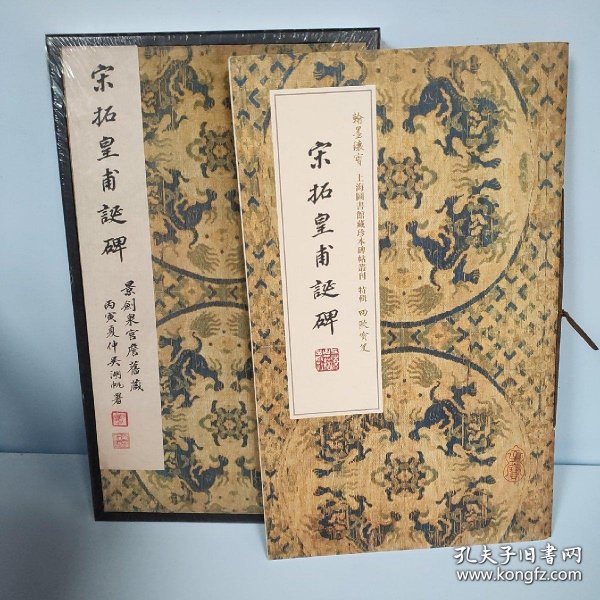 宋拓皇甫誕碑
景劍泉宮詹舊藏
丙寅夏仲吳湖帆署
翰墨瓌寶 上海圖書館藏珍本碑帖叢刊 特輯 四歐寶笈
宋拓皇甫誕碑
孔夫子旧书网
www.kongfz.com